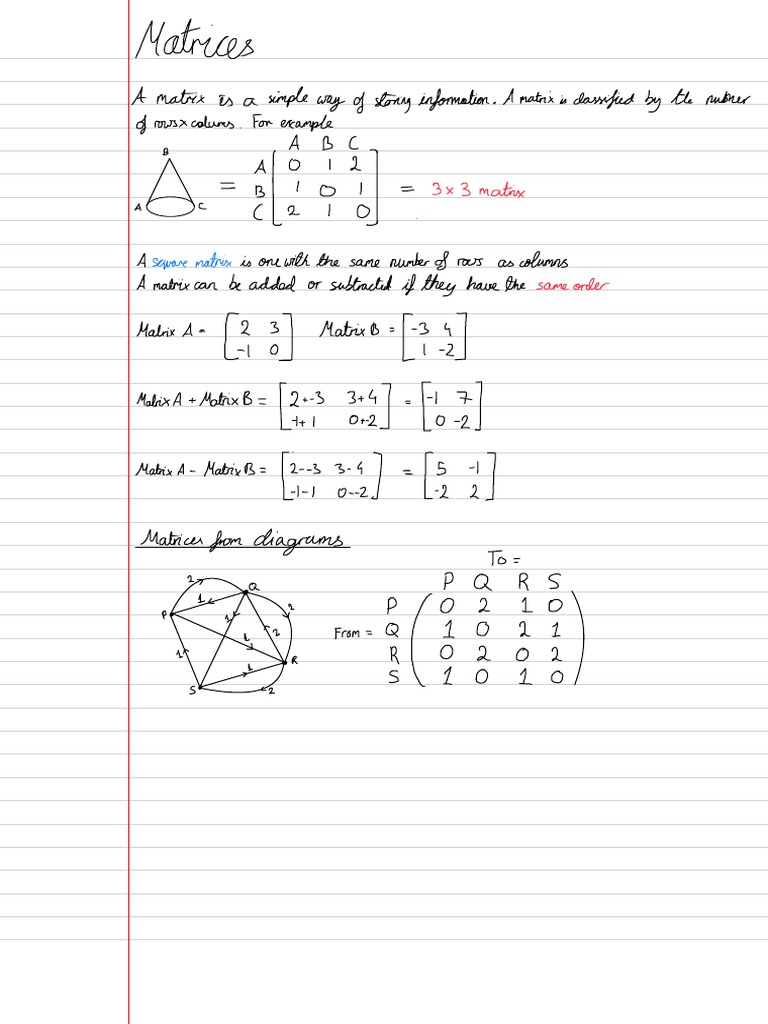 Matrices
A matrix is a simple way of storing information. A matrix is classified by the number
of rows x colums. For example
A B C
B
A 0 1 2
= B 1 0 1 = 3 x 3 matrix
A C
C 2 1 0
A square matrix is one with the same number of rows as columns
A matrix can be added or subtracted if they have the same order
Matrix A = [2 3] Matrix B = [-3 4]
[-1 0] [1 -2]
Matrix A + Matrix B = [2+-3 3+4] = [-1 7]
[-1+1 0+-2] [0 -2]
Matrix A - Matrix B = [2--3 3-4] = [5 -1]
[-1-1 0--2] [-2 2]
Matrices from diagrams
To =
P Q R S
2 Q
1 2
P 1
1 2
1 R
1
S 2
P 0 2 1 0
From = Q 1 0 2 1
R 0 2 0 2
S 1 0 1 0